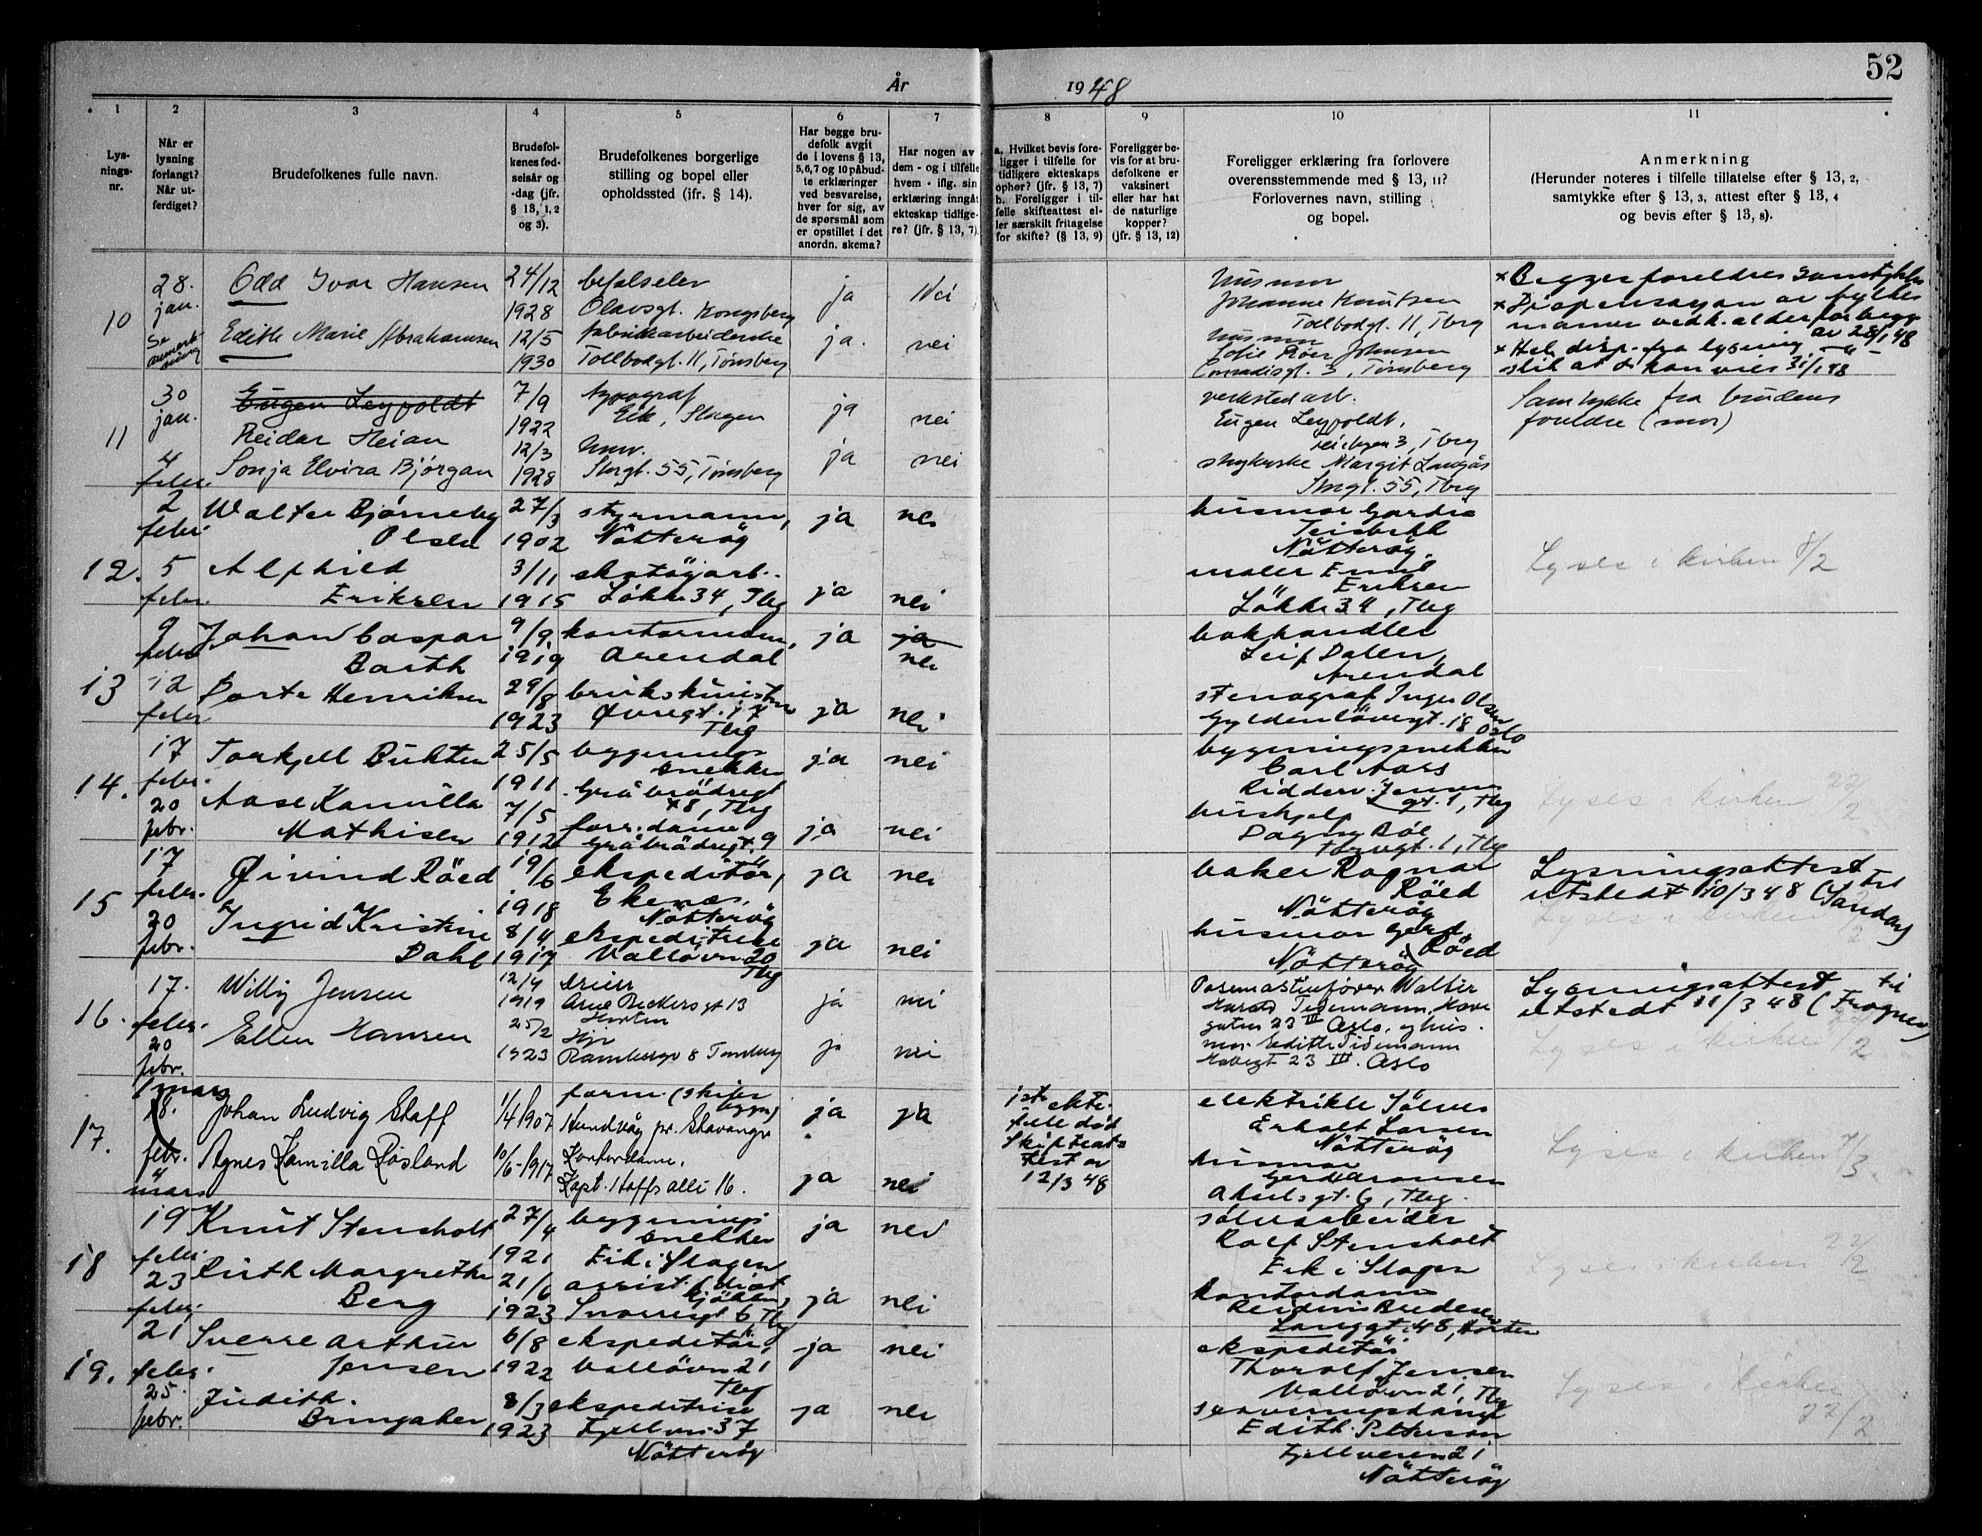 52
År 1948
1 2 3 4 5 6 7 8 9 10 11
Lys-
nings-
nr.
Når er
lysning
forlangt?
Når ut-
ferdiget?
Brudefolkenes fulle navn.
Brudefol-
kenes fød-
selsår og
-dag (jfr.
§ 13, 1, 2
og 3).
Brudefolkenes borgerlige
stilling og bopel eller
opholdssted (ifr. § 14).
Har begge bru-
defolk avgit
de i lovens § 13,
5, 6, 7 og 10 påbud-
te erklæringer
ved besvarelse,
hver for sig, av
de spørsmål som
er opstillet i det
anordn. skema?
Har nogen av
dem - og i tilfelle
hvem - iflg. sin
erklæring inngåt
ekteskap tidlige-
re? (jfr. § 13, 7).
a. Hvilket bevis fore-
ligger i tilfelle for
tidligere ekteskaps
ophør? (jfr. § 13, 7)
b. Foreligger i til-
felle skifteattest el-
ler særskilt fritagelse
for skifte? (§ 13, 9)
Foreligger be-
vis for at bru-
defolkene er
vaksinert
eller har hat
de naturlige
kopper?
(jfr. § 13, 12)
Foreligger erklæring fra forlovere
overensstemmende med § 13, 11?
Forlovernes navn, stilling
og bopel.
Anmerkning
(Herunder noteres i tilfelle tillatelse efter § 13, 2,
samtykke efter § 13, 3, attest efter § 13, 4
og bevis efter § 13, 8).
10
28.
jan.
Odd Ivar Hansen
24/12
1928
befalselev
Olavsgt. Kongsberg
ja
Nei
Edith Marie Abrahamsen
12/5
1930
fabrikkarbeiderske
Tollbodgt. 11, Tønsberg
ja.
nei
husmor
Johanne Knutsen
Tollbodgt. 11, Tbrg
husmor
Sofie Röer Johnsen
Conradisgt. 3, Tønsberg
x Begges foreldres samtykke
x Dispensasjon av fylkes
mannen vedk. alder for begge
av 28/1 48
11
30
jan.
4
febr.
Eugen Leypoldt
Reidar Heian
7/9
1922
typograf
Eik, Slagen
ja
nei
Sonja Elvira Bjørgan
12/3
1928
Storgt. 55, Tønsberg
ja
nei
verkstedarb.
Eugen Leypoldt,
Margit Langås
Storgt. 55, Tbrg
Samtykke fra brudens
foreldre (mor)
12.
2
febr.
5
febr.
Walter Bjørneby
Olsen
27/3
1902
styrmann,
Nötteröy
ja
nei
Alfhild
Eriksen
3/11
1915
skotöjarb.
Løkke 34, Tbg
ja
nei
husmor
Nötteröy.
maler Emil
Eriksen
Lökke 34, Tbg
Lyses i kirken 8/2
13
9
febr
12
febr
Johan Caspar
Barth
9/9
1919
kontormann,
Arendal
ja
ja
nei
Dorte Henriksen
29/8
1923
Øvregt. 17
Tbg
ja
nei
bokhandler
Leif Dalen,
Arendal
stenograf Inger Olsen
Gyldenlövesgt. 18 Oslo
14.
17
febr.
20
febr.
Torkjell Bukten
25/5
1911
bygnings
snekker
Gråbrödregt
ja
nei
Aase Kamilla
Mathisen
7/5
1912
forr. dame
Gråbrödregt. 9
ja
nei
bygningssnekker
Carl Aars
hushjelp
Dagny Böe
Lyses i kirken 22/2
15
17
febr.
20
febr.
Øivind Röed
19/6
1918
ekspeditör,
Ekenes,
Nötteröy
ja
nei
Ingrid Kristine
Dahl
8/4
1917
ekspeditrise
Vallövn 20
Tbg
ja
nei
baker Ragnar
Röed
Nötteröy
husmor Gerd
Röed
Nötteröy
Lysningsattest
utstedt 10/3 48 (Sandar)
16.
17.
febr.
20
febr.
Willy Jensen
12/4
1919
dreier
Arne Beckers gt 13
Horten
ja
nei
Ellen Hansen
25/2
1923
Hjv
Rambergv 8 Tønsberg
ja
nei
Walter
Harald Tidemann, Have
gaten 23 III Oslo, og hus-
mor Edith Tidemann
Havegt 23 III. Oslo
Lysningsattest til
utstedt 11/3 48 (Frogner)
Lyses i kirken 22/2
17.
1 mars
18.
febr.
4
mars
Johan Ludvig Staff
1/4 1907
form. (skifer
Hundvåg pr. Stavanger
ja
ja
Agnes Kamilla Røsland
10/6-1917
Kontordame.
Kapt. Hoffs alle 16.
ja
nei
1ste ekte-
felle död
Skifteat-
test av
12/3 48
Larsen
Nötteröy
husmor
Gerd Aronsen
gt. 6, Tbg.
Lyses i kirken 7/3.
18
19
febr.
23
febr.
Knut Stensholt
27/4
1921
bygnings
snekker
Eik i Slagen
ja
nei
Ruth Margrethe
Berg
21/6
1923
assist. (diet
kjökken)
Snorresgt 6 Tbg
ja
nei
sölvarbeider
Rolf Stensholt
Eik i Slagen
kontordame
Reidun Bredesen
Langgt. 48, Horten
Lyses i kirken 22/2
19.
21
febr.
25.
febr.
Sverre Arthur
Jensen
6/8
1922
ekspeditör,
Vallövn 21
Tbg
ja
nei
Judith.
Bringaker
8/3
1923
ekspeditrise
Fjellvn 37
Nötteröy
ja
nei
ekspeditör
Thorolf Jensen
Vallövn 21, Tbg
serveringsdame
Edith Petterson
Fjellveien 21
Nötteröy
Lyses i kirken
22/2